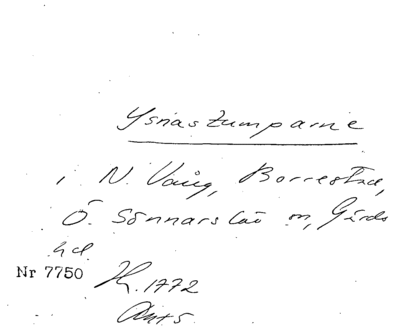 Ysnastumparne
i N. Vång, Borrestad,
Ö. Sönnarslöv sn, Gärds
hd.
Nr 7750 K. 1772
Ant 5